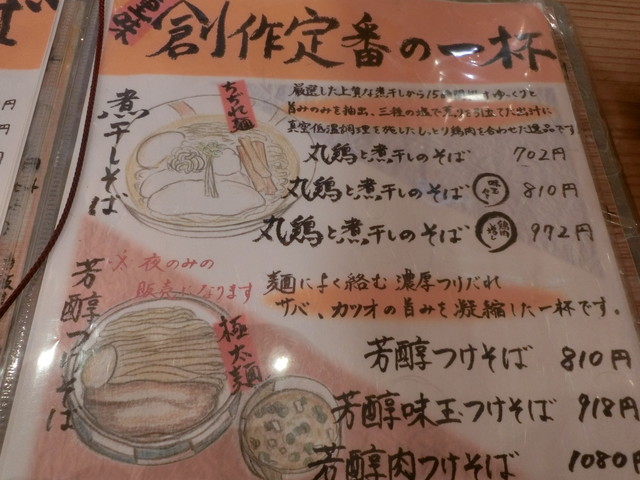 創作定番の一杯
ちぢれ麺
煮干しそば
厳選した上質な煮干しから15時間
旨みのみを抽出、三種の塩で
真空低温調理を施したしとり鶏肉を合わせた逸品です
丸鶏と煮干しのそば 702円
丸鶏と煮干しのそば 味玉 810円
丸鶏と煮干しのそば 972円
※夜のみの
販売になります
麺によく絡む濃厚つけだれ
サバ、カツオの旨みを凝縮した一杯です。
極太麺
芳醇つけそば
芳醇つけそば 810円
芳醇味玉つけそば 918円
芳醇肉つけそば 1080円